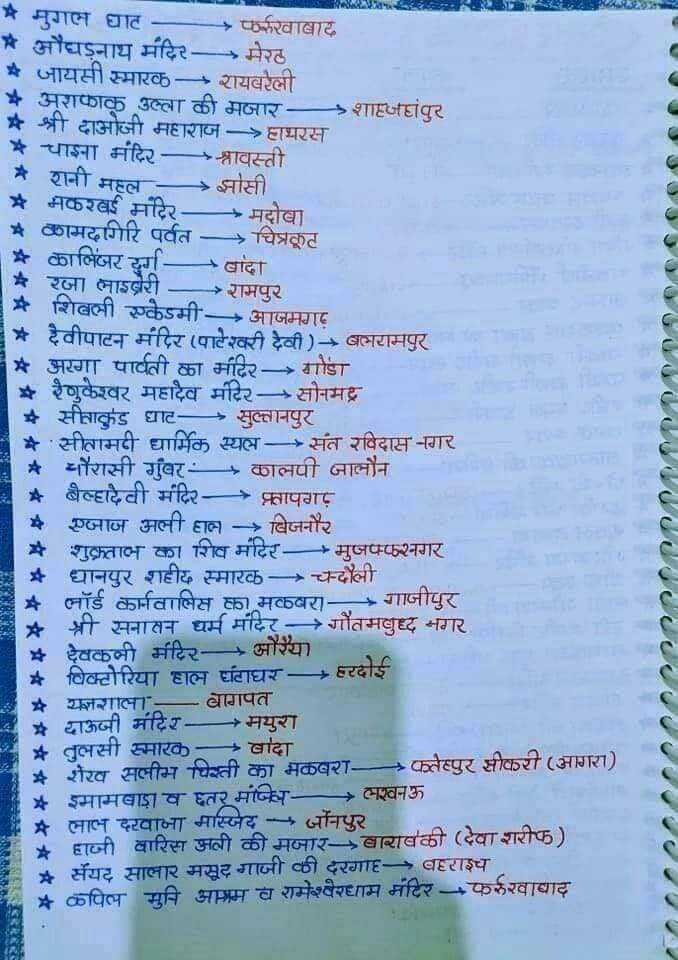 ★ मुगल घाट → फर्रुखाबाद
★ औघड़नाथ मंदिर → मेरठ
★ जायसी स्मारक → रायबरेली
★ अशफाक उल्ला की मजार → शाहजहांपुर
★ श्री दाओजी महाराज → हाथरस
★ चाइना मंदिर → श्रावस्ती
★ रानी महल → झांसी
★ मकरबई मंदिर → महोबा
★ कामदगिरि पर्वत → चित्रकूट
★ कालिंजर दुर्ग → बांदा
★ रजा लाइब्रेरी → रामपुर
★ शिबली एकेडमी → आजमगढ़
★ देवीपाटन मंदिर (पाटेश्वरी देवी) → बलरामपुर
★ अरगा पार्वती का मंदिर → गोंडा
★ रेणुकेश्वर महादेव मंदिर → सोनभद्र
★ सीताकुंड घाट → सुल्तानपुर
★ सीतामढ़ी धार्मिक स्थल → संत रविदास नगर
★ चौरासी गुंबर → कालपी जालौन
★ बेल्हादेवी मंदिर → प्रतापगढ़
★ एजाज अली हाल → बिजनौर
★ शुक्रताल का शिव मंदिर → मुजफ्फरनगर
★ धानपुर शहीद स्मारक → चन्दौली
★ लॉर्ड कार्नवालिस का मकबरा → गाजीपुर
★ श्री सनातन धर्म मंदिर → गौतमबुध्द नगर
★ देवकली मंदिर → औरैया
★ विक्टोरिया हाल घंटाघर → हरदोई
★ यज्ञशाला — बागपत
★ दाऊजी मंदिर → मथुरा
★ तुलसी स्मारक → बांदा
★ शेख सलीम चिश्ती का मकबरा → फतेहपुर सीकरी (आगरा)
★ इमामबाडा व छतर मंजिल → लखनऊ
★ लाल दरवाजा मस्जिद → जौनपुर
★ हाजी वारिस अली की मजार → बाराबंकी (देवा शरीफ)
★ सैयद सालार मसूद गाजी की दरगाह → बहराइच
★ कपिल मुनि आश्रम व रामेश्वरधाम मंदिर → फर्रुखाबाद